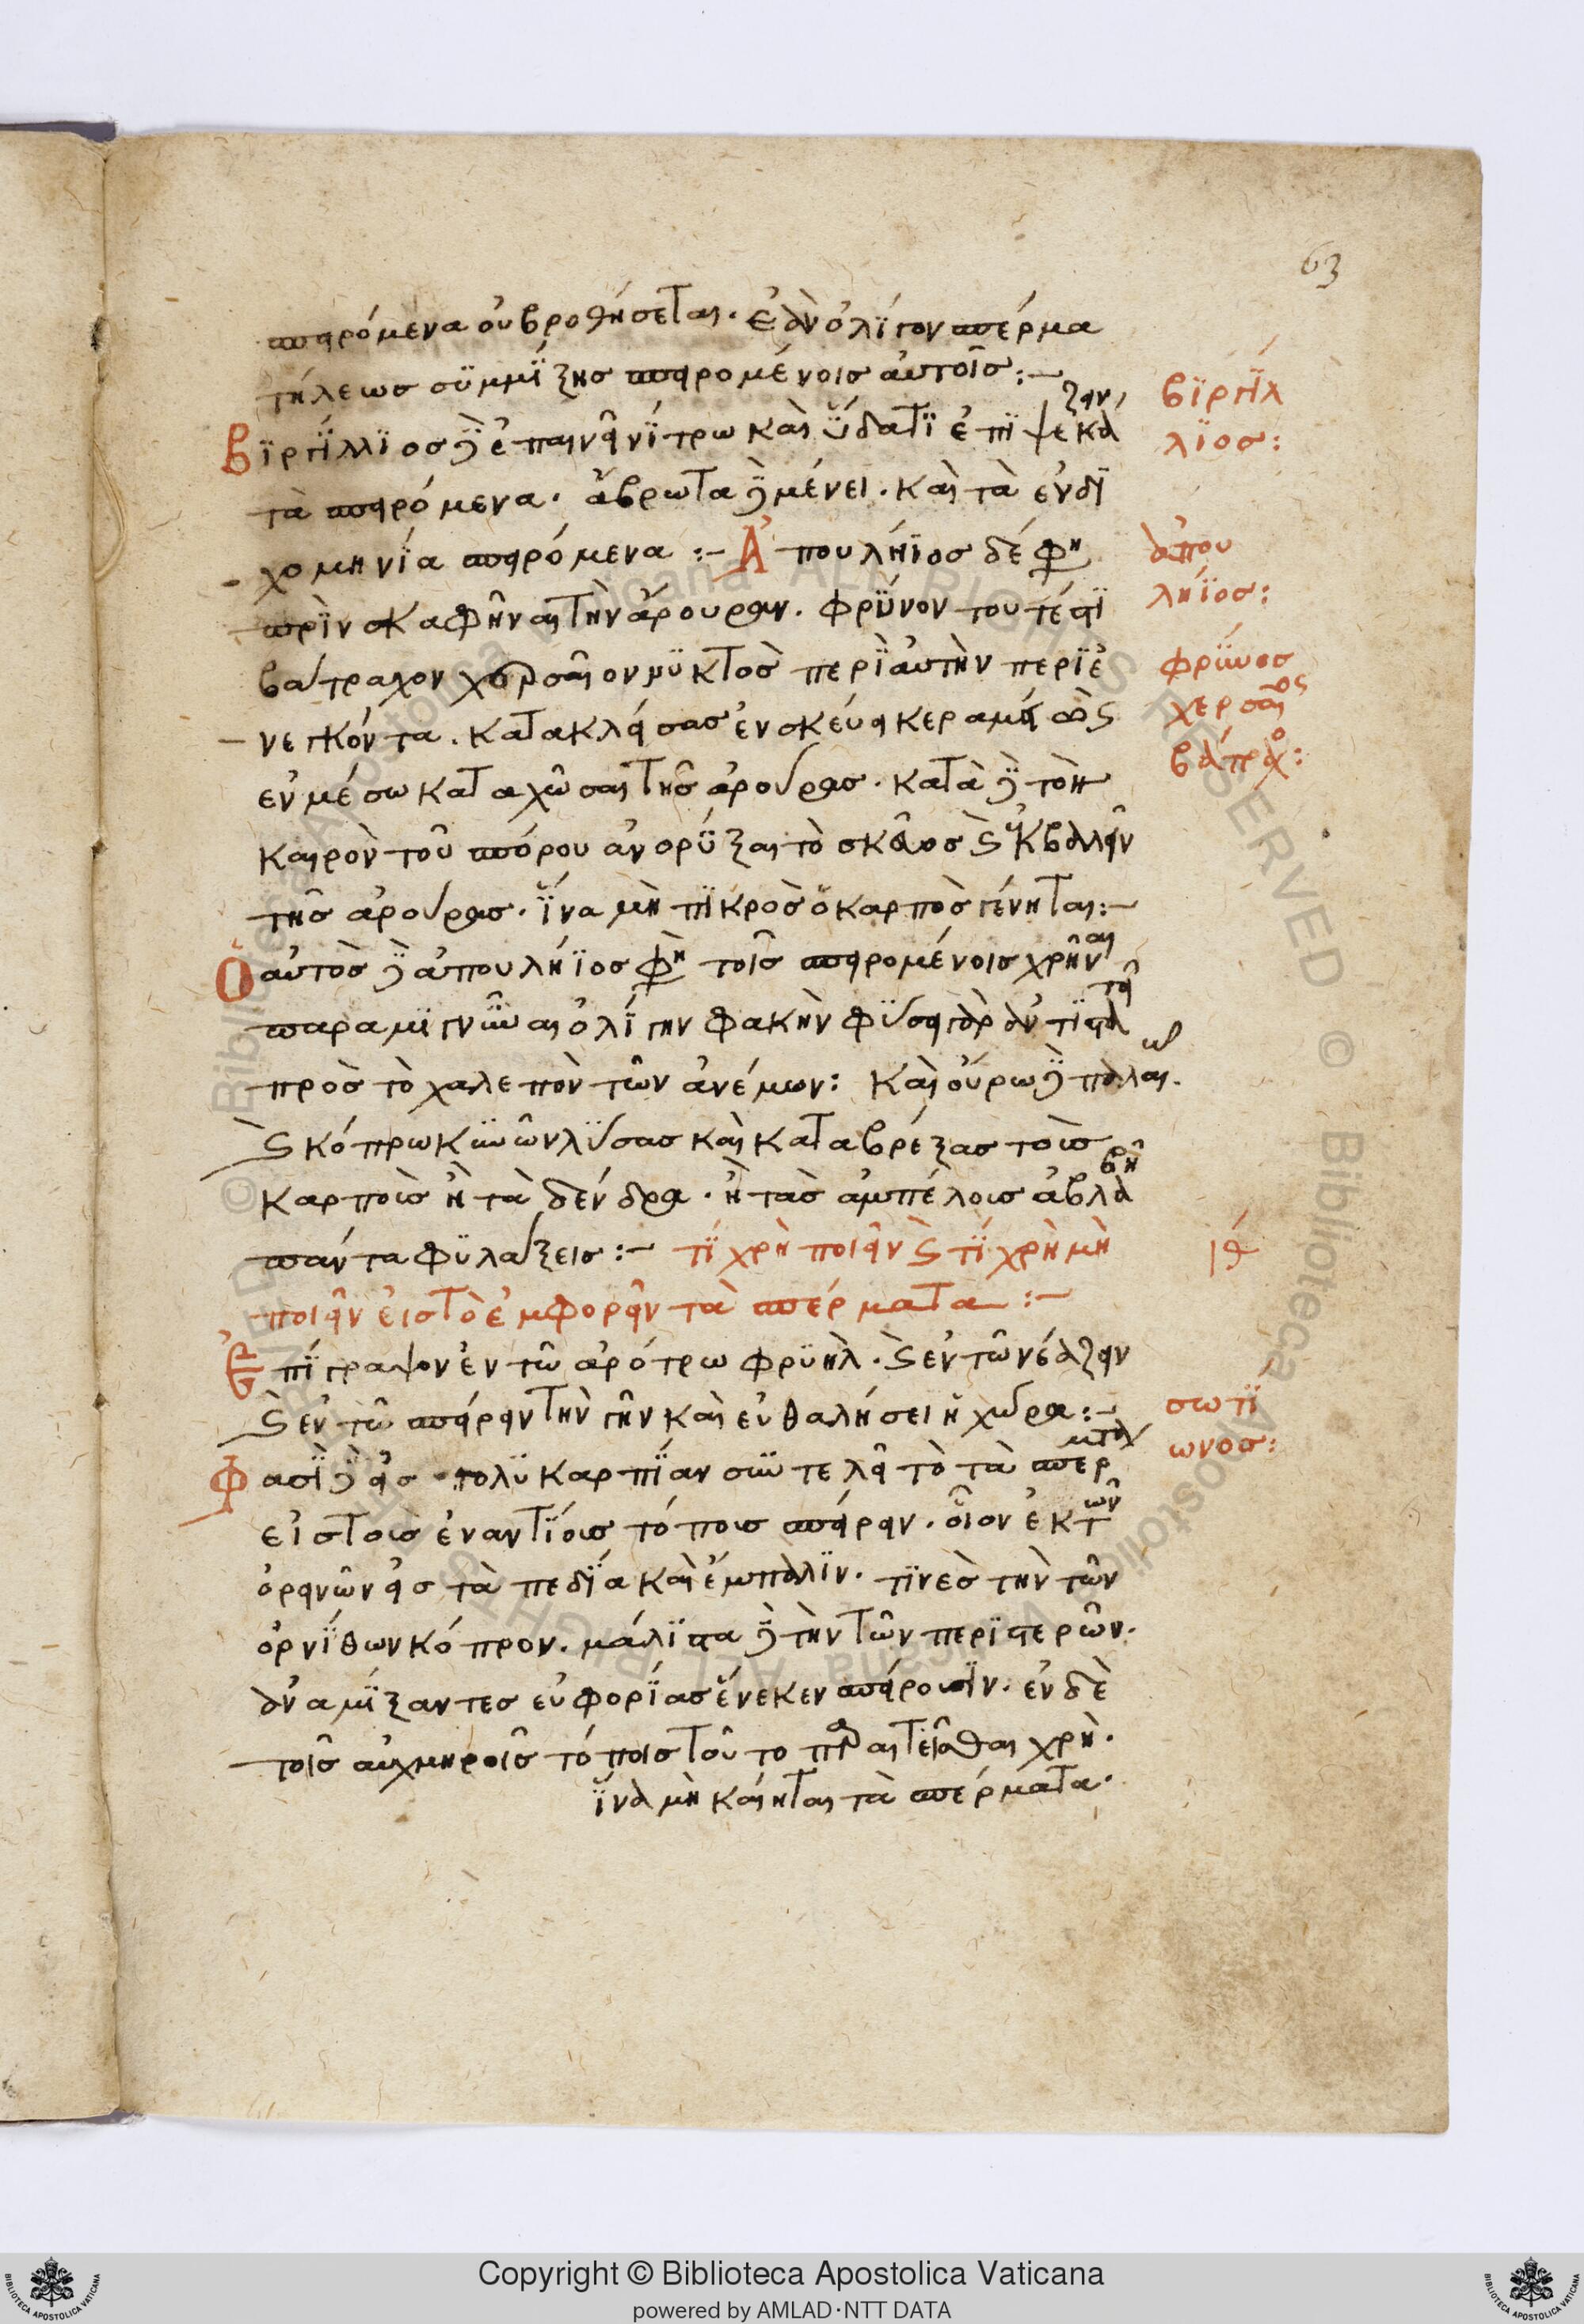 63
σπειρόμενα οὐ βρωθήσεται. ἐὰν ὀλίγον σπέρμα
τήλεως συμμίξης σπειρομένοις αὐτοῖς:-
Βιργίλλιος δὲ ἐπαινεῖ νίτρω καὶ ὕδατι ἐπιψεκάζειν
βιργίλ
λιος:
τὰ σπειρόμενα. ἄβρωτα δὲ μένει. καὶ τὰ ἐν δι
χομηνία σπειρόμενα:- Ἀπουλήϊος δέ φη
ἀπου
λήϊος:
πρὶν σκαφῆναι τὴν ἄρουραν. φρῦνον τουτέστι
βάτραχον χερσαῖον νυκτὸς περὶ αὐτὴν περιε
φρῦνος
χερσαῖος
βάτραχο:
νεγκόντα. κατακλείσας ἐν σκεύει κεραμείω
ἐν μέσω καταχῶσαι τῆς ἀρούρας. κατὰ δὲ τὸν
καιρὸν τοῦ σπόρου ἀνορύξαι τὸ σκεῦος καὶ ἐκβαλεῖν
τῆς ἀρούρας. ἵνα μὴ πικρὸς ὁ καρπὸς γένηται:-
Ὁ αὐτὸς δὲ ἀπουλήϊος φὴ τοῖς σπειρομένοις χρῆναι
παραμιγνῦναι ὀλίγην φακὴν φύσει γὰρ ἀντιστατεῖ
πρὸς τὸ χαλεπὸν τῶν ἀνέμων: καὶ οὔρω δὲ παλαιῶ
καὶ κόπρω κυνῶν λύσας καὶ καταβρέξας τοὺς
καρποὺς ἢ τὰ δένδρα. ἢ τὰς ἀμπέλους ἀβλαβῆ
πάντα φυλάξεις:- τί χρὴ ποιεῖν καὶ τί χρὴ μὴ
ιθ
ποιεῖν εἰς τὸ ἐμφορεῖν τὰ σπέρματα:-
Ἐπίγραψον ἐν τῶ ἀρότρω φρυήλ. καὶ ἐν τῶ νεάζειν
καὶ ἐν τῶ σπείρειν τὴν γῆν καὶ εὐθαλήσει ἡ χώρα:-
σωτί
ωνος:
Φασὶ δὲ εἰς πολυκαρπίαν συντελεῖ τὸ τὰ σπέρματα
εἰς τοὺς ἐναντίους τόπους σπείρειν. οἷον ἐκ τῶν
ὀρεινῶν εἰς τὰ πεδία καὶ ἔμπαλιν. τινὲς τὴν τῶν
ὀρνίθων κόπρον. μάλιστα δὲ τὴν τῶν περιστερῶν.
ἀναμίξαντες εὐφορίας ἕνεκεν σπείρουσιν. ἐν δὲ
τοῖς αὐχμηροῖς τόποις τοῦτο παραιτεῖσθαι χρή.
ἵνα μὴ καίηται τὰ σπέρματα.
Copyright © Biblioteca Apostolica Vaticana
powered by AMLAD·NTT DATA